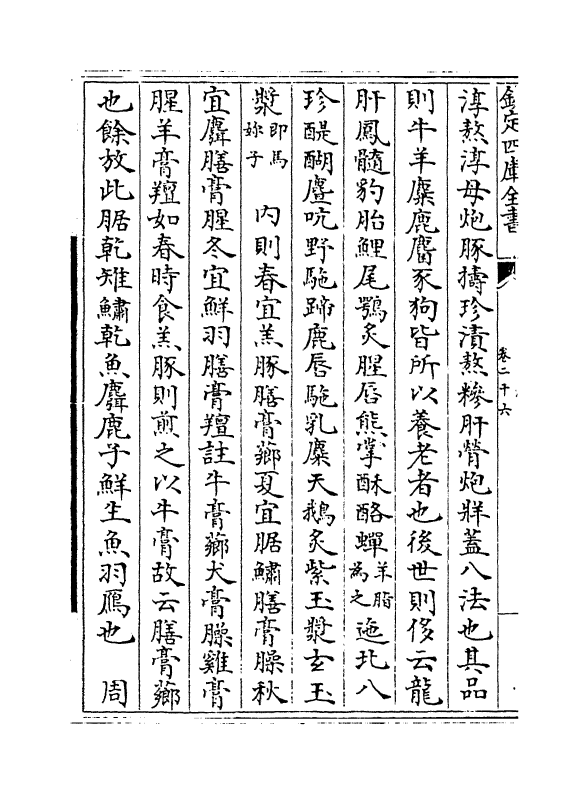 欽定四庫全書
卷二十六
淳熬淳母炮豚擣珍漬熬糝肝膋炮牂蓋八法也其品
則牛羊麋鹿麕豕狗皆所以養老者也後世則侈云龍
肝鳳髓豹胎鯉尾鴞炙腥唇熊掌酥酪蟬羊脂為之迤北八
珍醍醐麆吭野駞蹄鹿唇駞乳麋天鵝炙紫玉漿玄玉
漿即馬妳子　内則春宜羔豚膳膏薌夏宜腒鱐膳膏臊秋
宜麛膳膏腥冬宜鮮羽膳膏羶註牛膏薌犬膏臊雞膏
腥羊膏羶如春時食羔豚則煎之以牛膏故云膳膏薌
也餘放此腒乾雉鱐乾魚麛鹿子鮮生魚羽鴈也　周